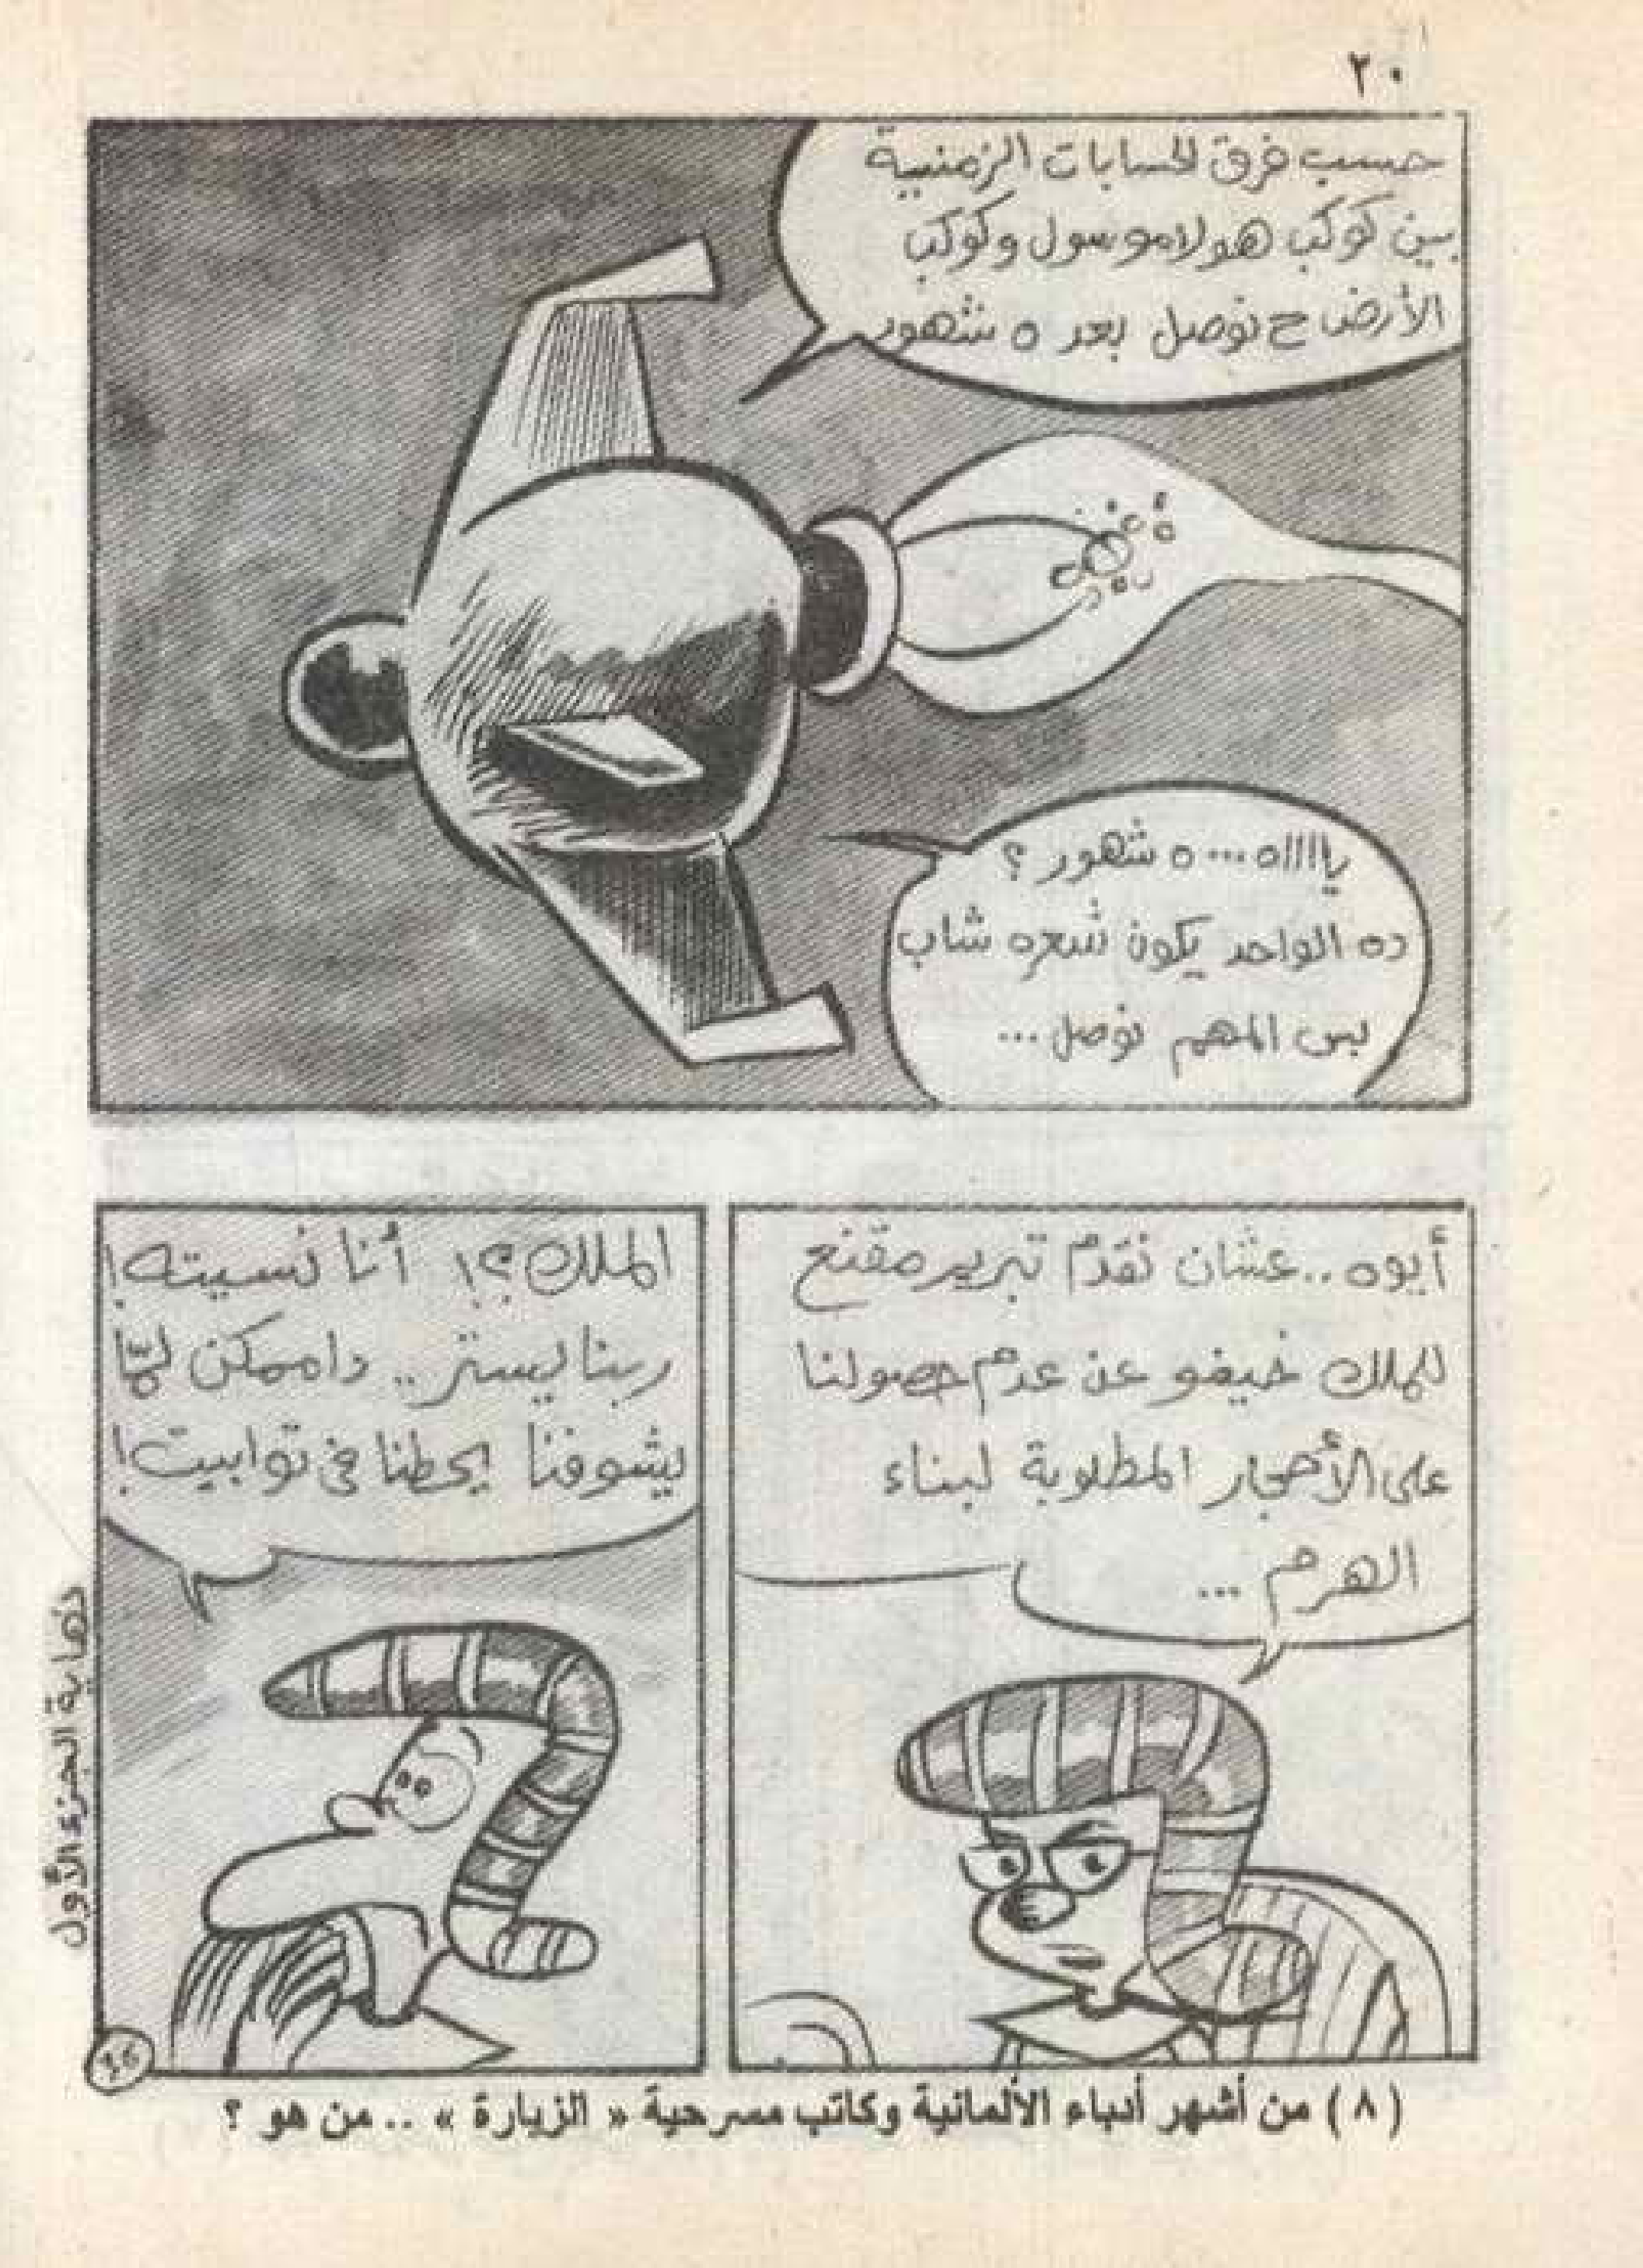 ٢٠
حسب فرق الحسابات الزمنية
بين كوكب هولاموسول وكوكب
الأرض ح نوصل بعد ٥ شهور
ياااااه ... ٥ شهور ؟
ده الواحد يكون شعره شاب
بس المهم نوصل ...
أيوه .. عشان نقدم تبرير مقنع
للملك خيفو عن عدم حصولنا
على الأحجار المطلوبة لبناء
الهرم ...
الملك ؟! أنا نسيته !
ربنا يستر .. دا ممكن لمّا
يشوفنا يحطنا فى توابيت !
نهاية الجزء الأول
( ٨ ) من أشهر أدباء الألمانية وكاتب مسرحية « الزيارة » .. من هو ؟